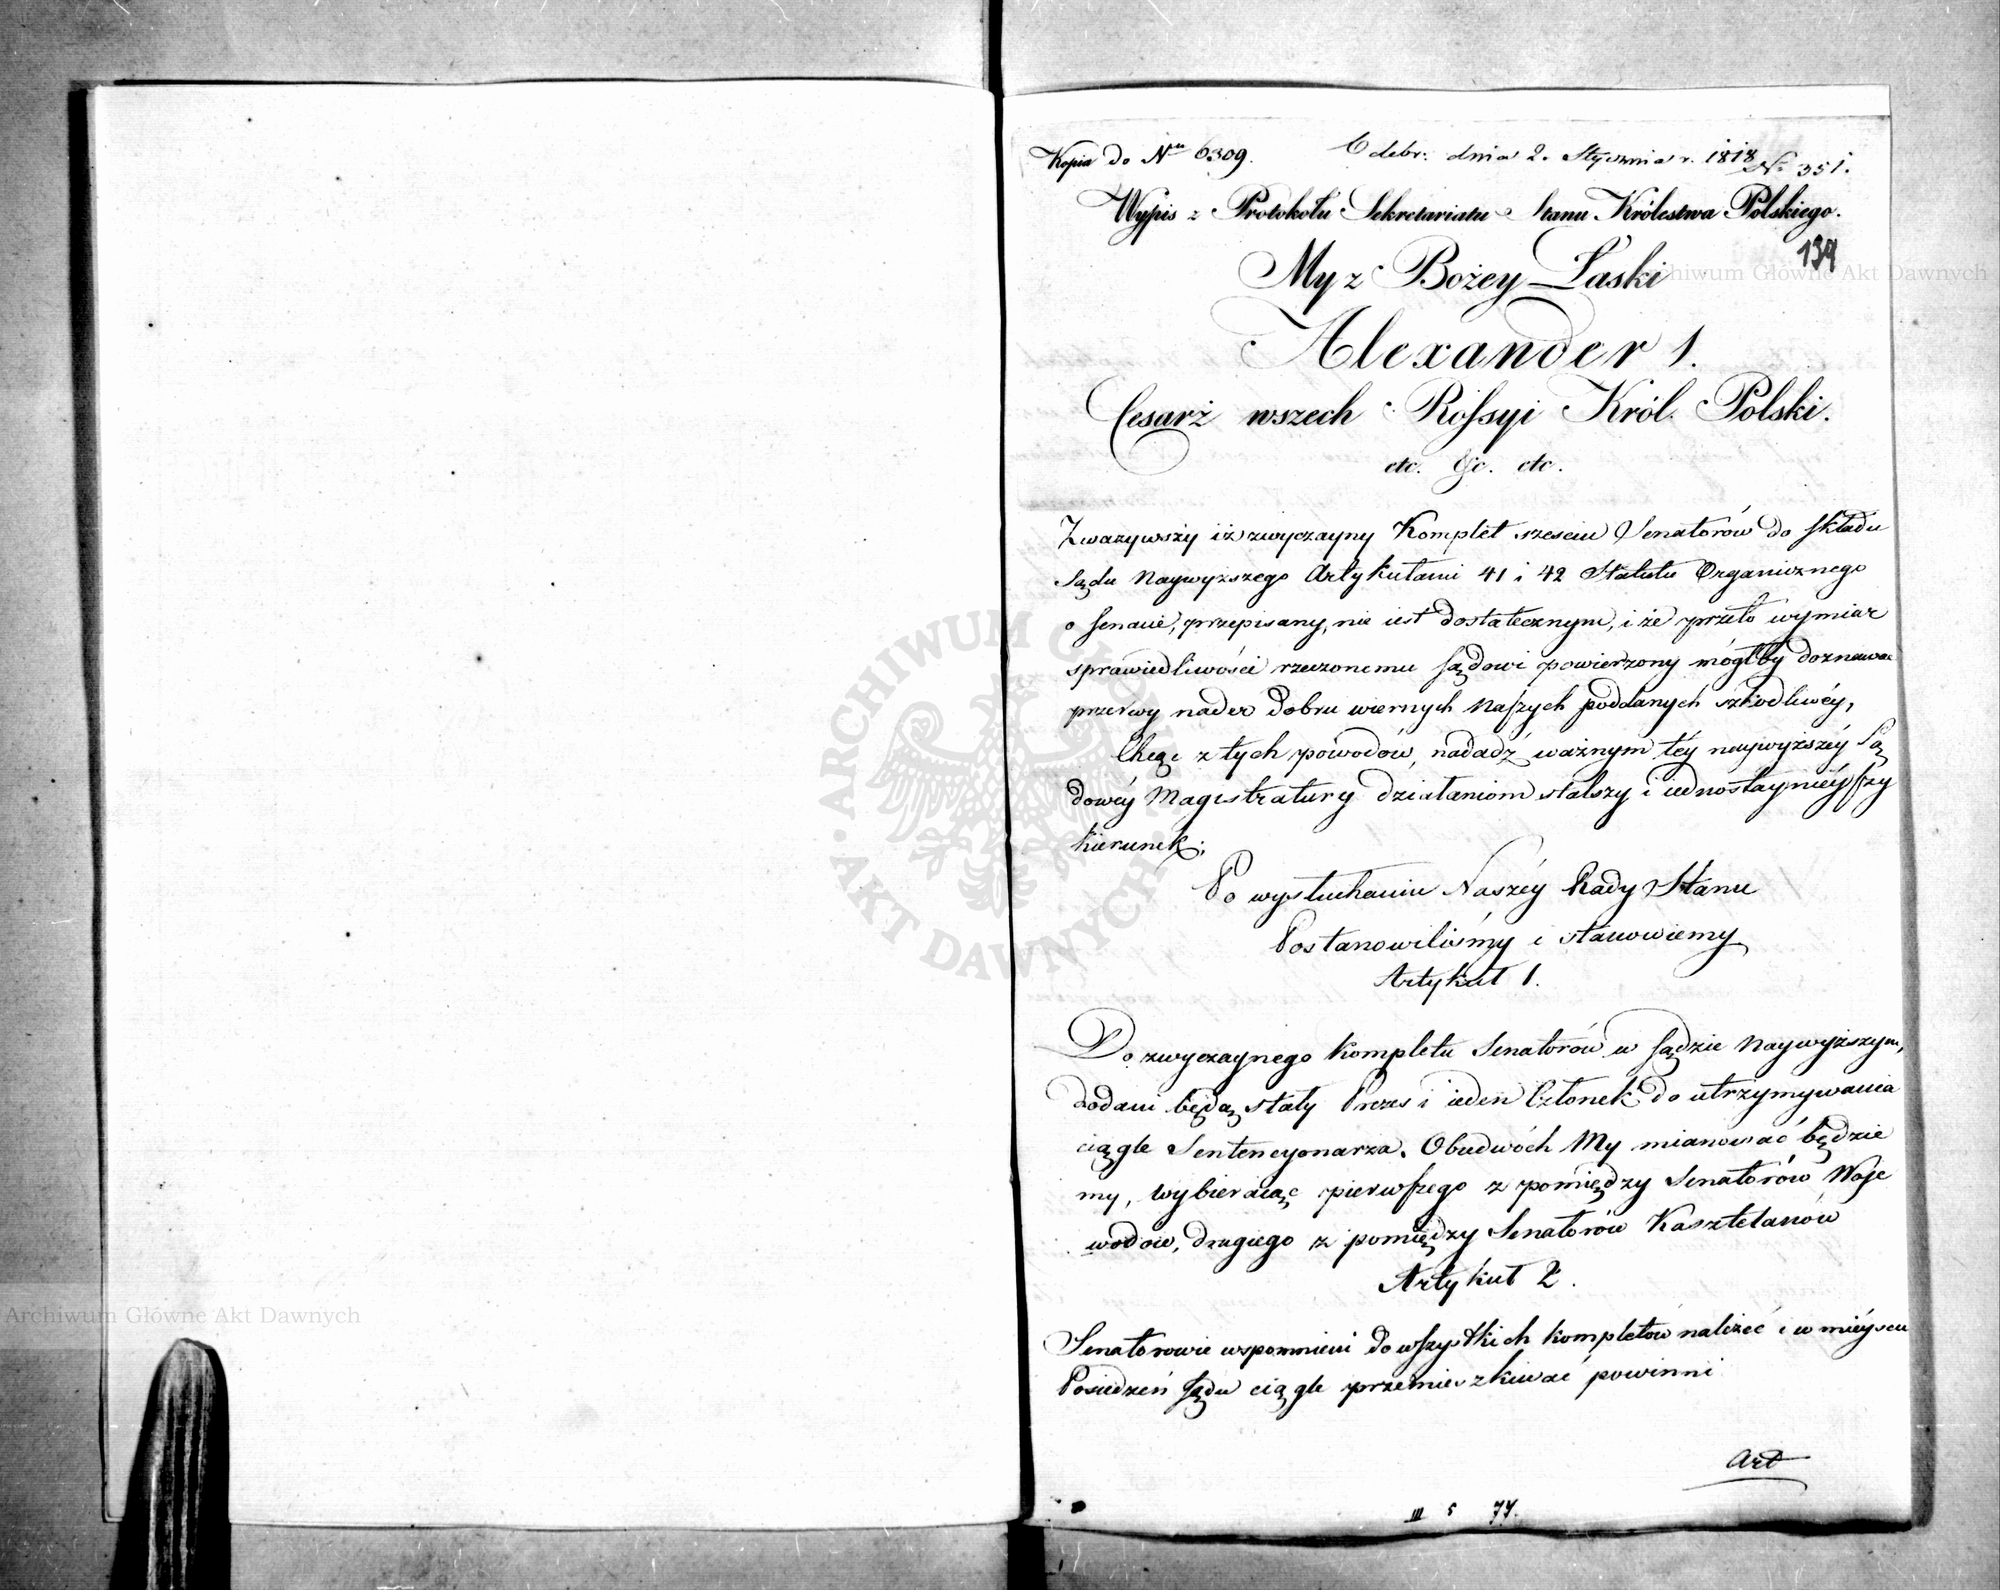 Kopia do Nru 6309. Odebr: dnia 2. Stycznia r. 1818 No 351.
Wypis z Protokołu Sekretariatu Stanu Królestwa Polskiego.
134
My z Bożey Łaski
Alexander 1.
Cesarż wszech Rossyi Król Polski.
etc. &c. etc.
Zważywszy iż zwyczayny Komplet sześciu Senatorów do składu
Sądu Naywyższego Artykułami 41 i 42 Statutu Organicznego
o Senacie, przepisany, nie iest dostatecznym, i że przeto wymiar
sprawiedliwości rzeczonemu sądowi powierzony mógłby doznawać
przerwy nader dobru wiernych naszych poddanych szkodliwéy,
Chcąc z tych powodów, nadadź ważnym téy naywyższéy Są
dowéy Magistratury działaniom stalszy i iednostaynieyszy
kierunek;
Po wysłuchaniu Naszéy Rady Stanu
Postanowiliśmy i stanowiemy
Artykuł 1.
Do zwyczaynego kompletu Senatorów w sądzie Naywyższym,
dodani będą stały Prezes i ieden Członek do utrzymywania
ciągle Sentencyonarza. Obudwóch My mianować będzie
my, wybieraiąc pierwszego z pomiędzy Senatorów Woje
wodów, drugiego z pomiędzy Senatorów Kasztelanów
Artykuł 2.
Senatorowie wspomnieni do wszystkich kompletów należeć i w mieyscu
Posiedzeń Sądu ciągle przemieszkiwać powinni
Art
III 5 77.
Archiwum Główne Akt Dawnych
Archiwum Główne Akt Dawnych
ARCHIWUM GŁÓWNE AKT DAWNYCH